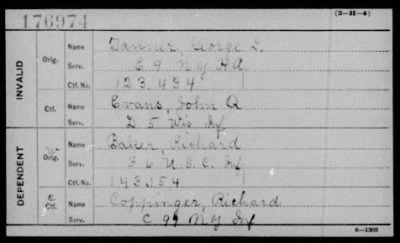 176974
(3-H-4)
INVALID
Orig.
Name Tanner, George L.
Serv. E 9 N Y H A
Ctf. No. 123,434
Ctf.
Name Evans, John A
Serv. D 5 Wis Inf
DEPENDENT
W
Orig.
Name Baker, Richard
Serv. I 6 U.S.C. Inf
Ctf. No. 143154
C
Ctf.
Name Coppinger, Richard
Serv. C 99 N Y Inf
6—1303